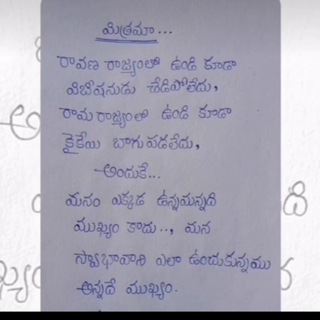 మిత్రమా...
రావణ రాజ్యంలో ఉండి కూడా
విభీషనుడు చేడిపోలేదు,
రామ రాజ్యంలో ఉండి కూడా
కైకేయి బాగుపడలేదు,
అందుకే...
మనం ఎక్కడ ఉన్నమన్నది
ముఖ్యం కాదు.., మన
స్వాభావాని ఎలా ఉంచుకున్నము
అన్నదే ముఖ్యం.